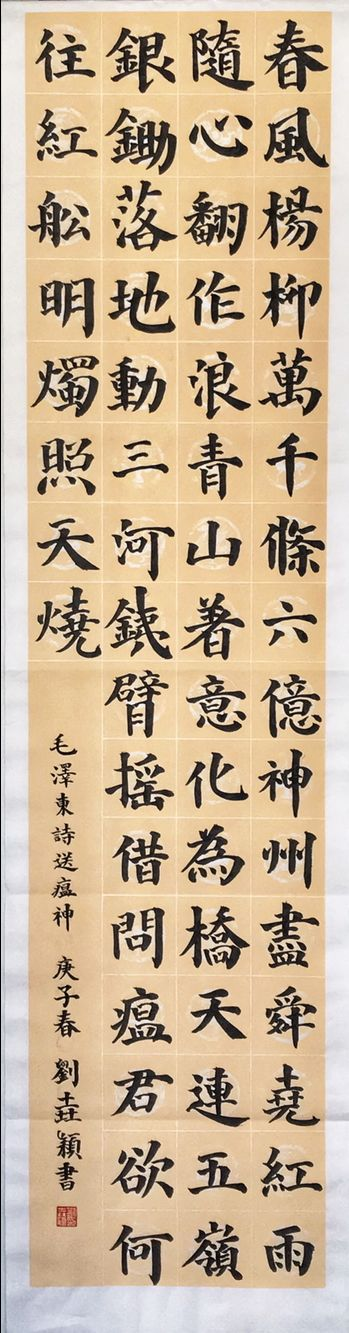 春風楊柳萬千條六億神州盡舜堯紅雨
隨心翻作浪青山著意化為橋天連五嶺
銀鋤落地動三河銕臂搖借問瘟君欲何
往紅舩明燭照天燒
毛澤東詩送瘟神 庚子春 劉穎書